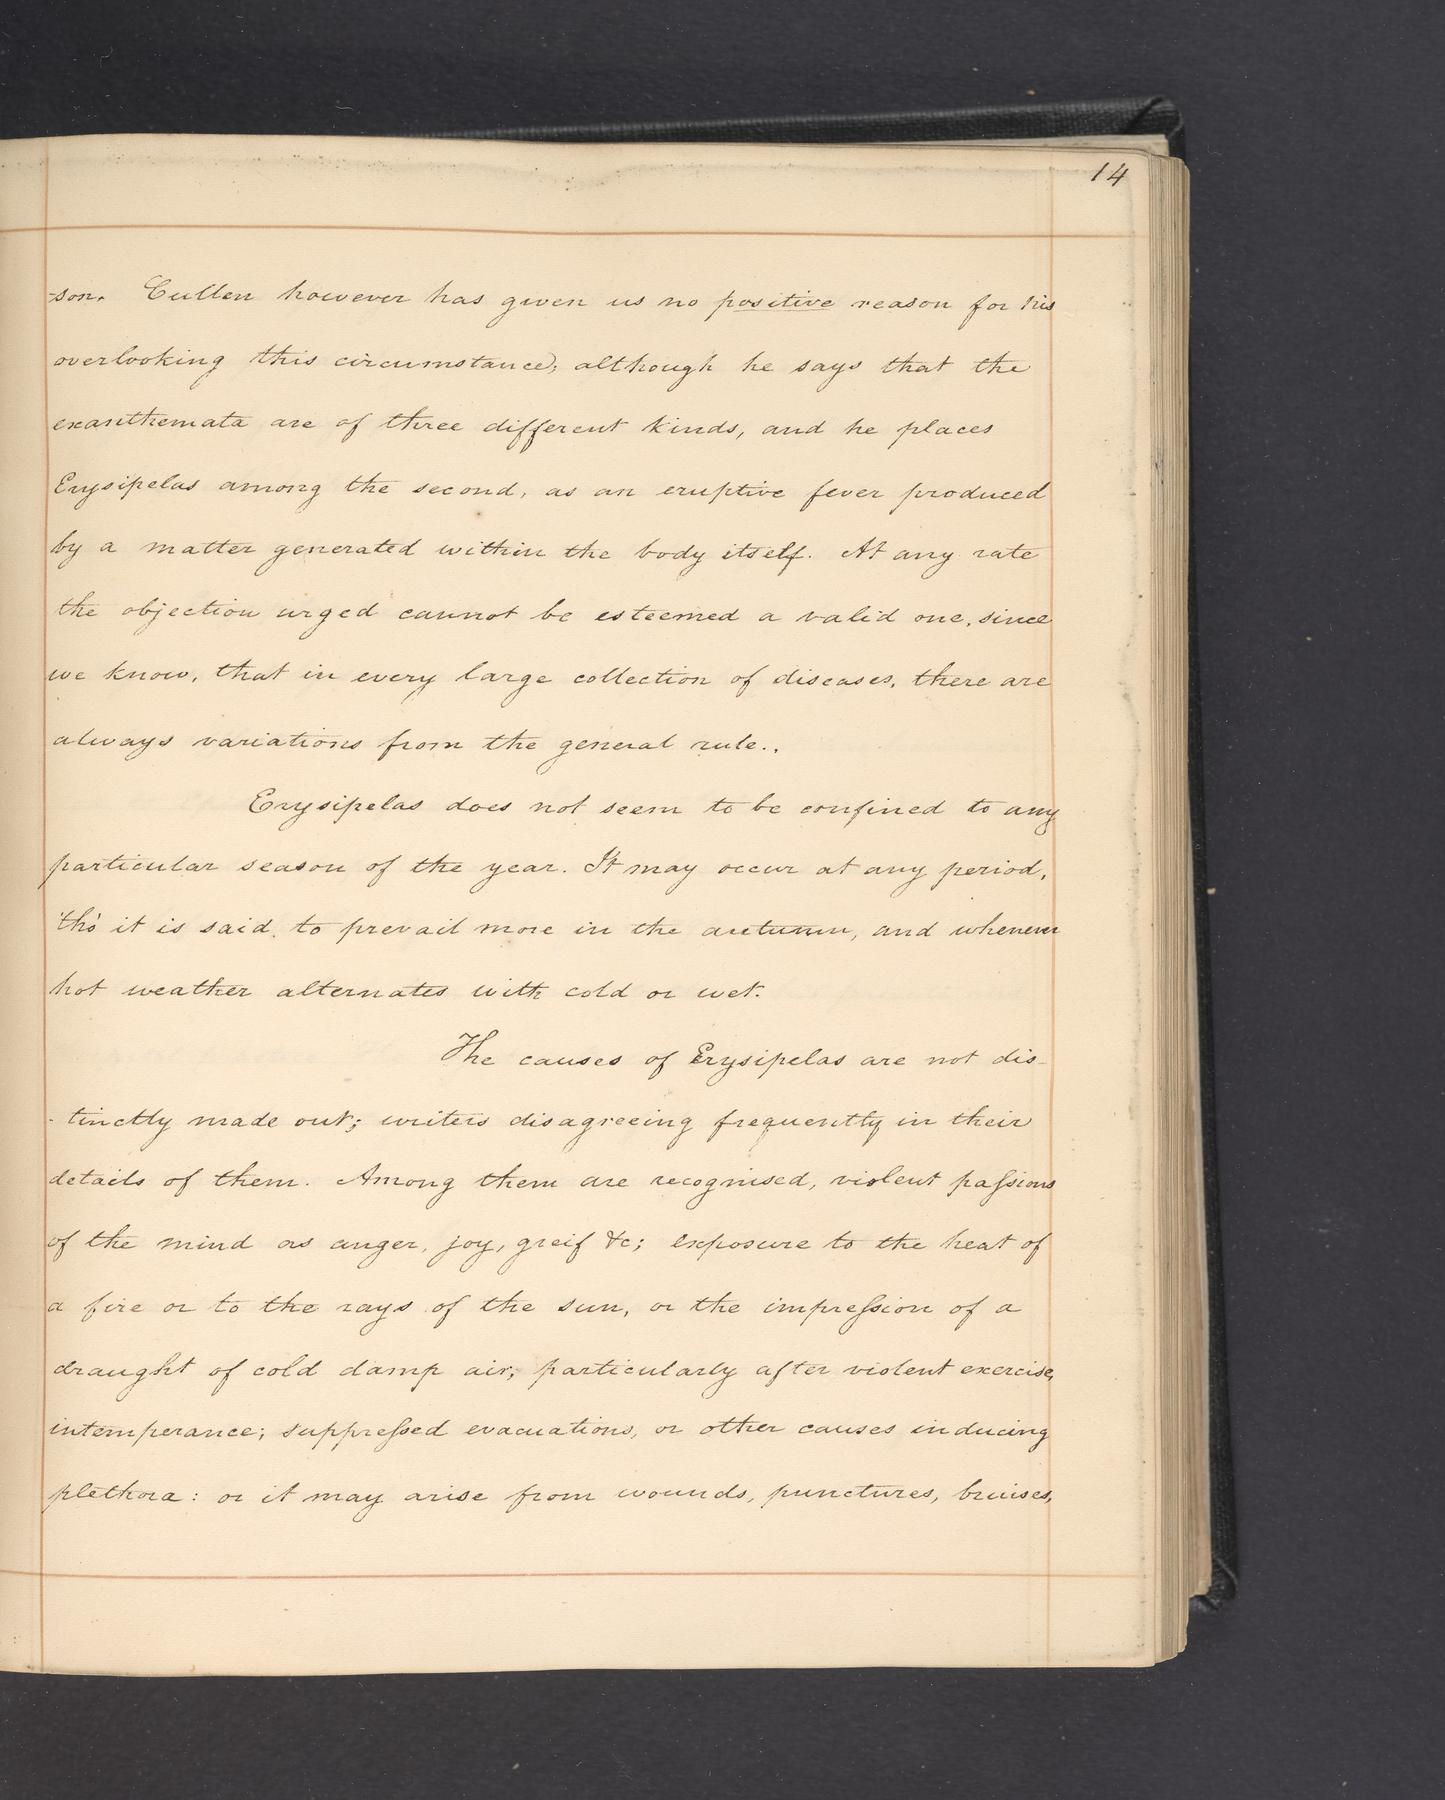 14
-son. Cullen however has given us no positive reason for his
overlooking this circumstance, although he says that the
exanthemata are of three different kinds, and he places
Erysipelas among the second, as an eruptive fever produced
by a matter generated within the body itself. At any rate
the objection urged cannot be esteemed a valid one, since
we know, that in every large collection of diseases, there are
always variations from the general rule..
Erysipelas does not seem to be confined to any
particular season of the year. It may occur at any period,
'tho' it is said to prevail more in the autumn, and whenever
hot weather alternates with cold or wet.
The causes of Erysipelas are not dis-
-tinctly made out; writers disagreeing frequently in their
details of them. Among them are recognised, violent paſsions
of the mind as anger, joy, greif &c; exposure to the heat of
a fire or to the rays of the sun, or the impreſsion of a
draught of cold damp air, particularly after violent exercise,
intemperance; suppreſsed evacuations, or other causes inducing
plethora: or it may arise from wounds, punctures, bruises,